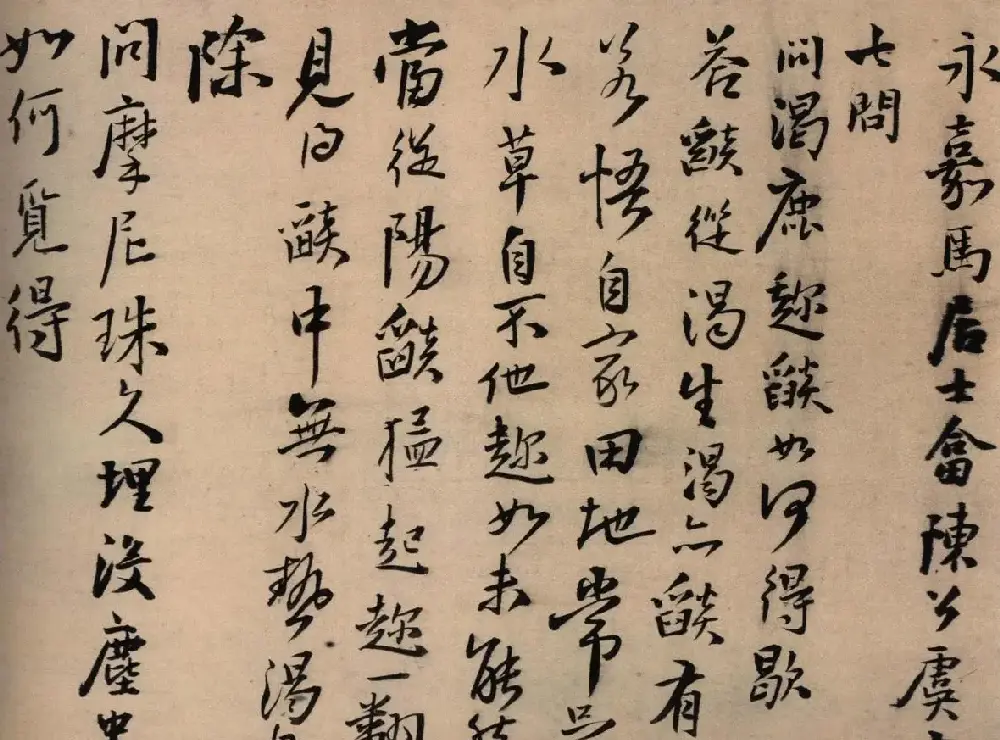 永嘉馬居士畣陳公虞
七問
問渴鹿趂燄如何得歇
荅燄從渴生渴亦燄有
若悟自家田地常
水草自不他趂如未能
當從陽燄猛起趂一翻
見得燄中無水勢渴
除
問摩尼珠久埋没塵中
如何覓得